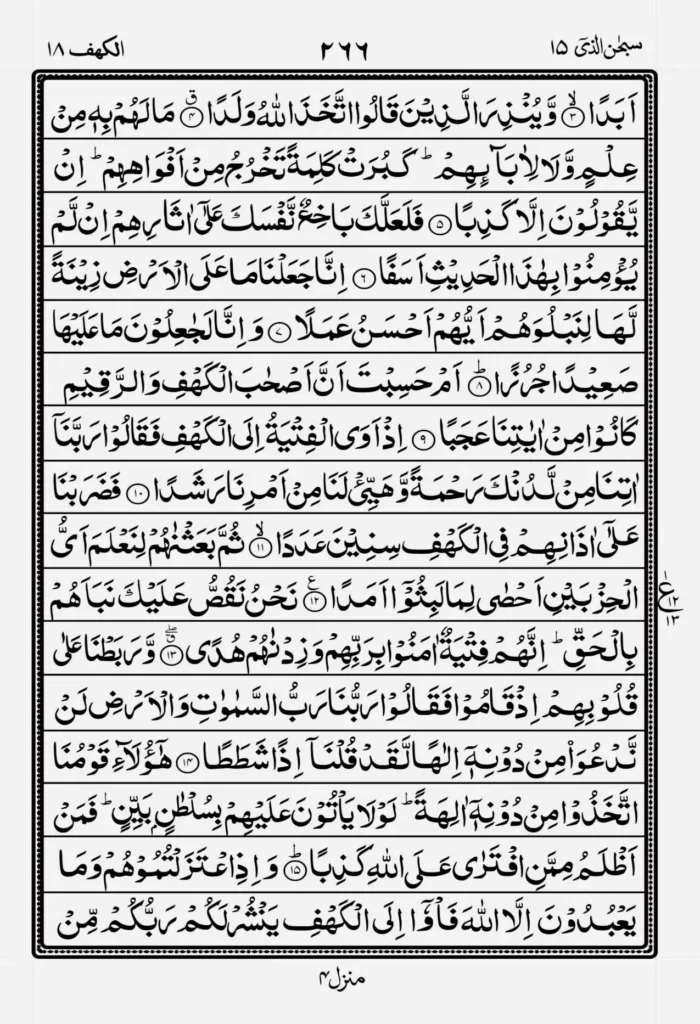 سبحٰن الذیٓ ١٥ ٢٦٦ الکهف ١٨
اَبَدًا ۙ﴿۳﴾ وَّیُنْذِرَ الَّذِیْنَ قَالُوا اتَّخَذَ اللّٰهُ وَلَدًا ۗ﴿۴﴾ مَا لَهُمْ بِهٖ مِنْ
عِلْمٍ وَّلَا لِاٰبَآىِٕهِمْ ؕ كَبُرَتْ كَلِمَةً تَخْرُجُ مِنْ اَفْوَاهِهِمْ ؕ اِنْ
یَّقُوْلُوْنَ اِلَّا كَذِبًا ﴿۵﴾ فَلَعَلَّكَ بَاخِعٌ نَّفْسَكَ عَلٰۤی اٰثَارِهِمْ اِنْ لَّمْ
یُؤْمِنُوْا بِهٰذَا الْحَدِیْثِ اَسَفًا ﴿۶﴾ اِنَّا جَعَلْنَا مَا عَلَی الْاَرْضِ زِیْنَةً
لَّهَا لِنَبْلُوَهُمْ اَیُّهُمْ اَحْسَنُ عَمَلًا ﴿۷﴾ وَ اِنَّا لَجٰعِلُوْنَ مَا عَلَیْهَا
صَعِیْدًا جُرُزًا ؕ﴿۸﴾ اَمْ حَسِبْتَ اَنَّ اَصْحٰبَ الْكَهْفِ وَالرَّقِیْمِ
كَانُوْا مِنْ اٰیٰتِنَا عَجَبًا ﴿۹﴾ اِذْ اَوَی الْفِتْیَةُ اِلَی الْكَهْفِ فَقَالُوْا رَبَّنَاۤ
اٰتِنَا مِنْ لَّدُنْكَ رَحْمَةً وَّهَیِّئْ لَنَا مِنْ اَمْرِنَا رَشَدًا ﴿۱۰﴾ فَضَرَبْنَا
عَلٰۤی اٰذَانِهِمْ فِی الْكَهْفِ سِنِیْنَ عَدَدًا ۙ﴿۱۱﴾ ثُمَّ بَعَثْنٰهُمْ لِنَعْلَمَ اَیُّ
الْحِزْبَیْنِ اَحْصٰی لِمَا لَبِثُوْۤا اَمَدًا ﴿۱۲﴾ع نَحْنُ نَقُصُّ عَلَیْكَ نَبَاَهُمْ
ع ۱۲ ۱۳
بِالْحَقِّ ؕ اِنَّهُمْ فِتْیَةٌ اٰمَنُوْا بِرَبِّهِمْ وَزِدْنٰهُمْ هُدًی ۗۖ﴿۱۳﴾ وَّرَبَطْنَا عَلٰی
قُلُوْبِهِمْ اِذْ قَامُوْا فَقَالُوْا رَبُّنَا رَبُّ السَّمٰوٰتِ وَالْاَرْضِ لَنْ
نَّدْعُوَا۠ مِنْ دُوْنِهٖۤ اِلٰهًا لَّقَدْ قُلْنَاۤ اِذًا شَطَطًا ﴿۱۴﴾ هٰۤؤُلَآءِ قَوْمُنَا
اتَّخَذُوْا مِنْ دُوْنِهٖۤ اٰلِهَةً ؕ لَوْلَا یَاْتُوْنَ عَلَیْهِمْ بِسُلْطٰنٍۭ بَیِّنٍ ؕ فَمَنْ
اَظْلَمُ مِمَّنِ افْتَرٰی عَلَی اللّٰهِ كَذِبًا ؕ﴿۱۵﴾ وَ اِذِ اعْتَزَلْتُمُوْهُمْ وَمَا
یَعْبُدُوْنَ اِلَّا اللّٰهَ فَاْوٗۤا اِلَی الْكَهْفِ یَنْشُرْ لَكُمْ رَبُّكُمْ مِّنْ
منزل ۴